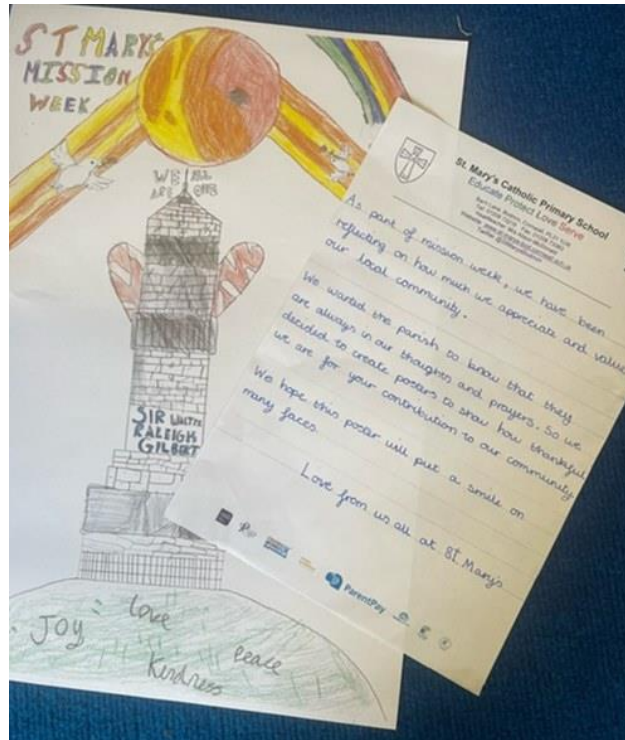 ST MARY'S
MISSION
WEEK
WE ALL
ARE ONE
SIR WALTER
RALEIGH
GILBERT
Joy
love
Peace
Kindness
St. Mary's Catholic Primary School
Educate Protect Love Serve
As part of mission week, we have been
reflecting on how much we appreciate and value
our local community.
We wanted the parish to know that they
are always in our thoughts and prayers. So we
decided to create posters to show how thankful
we are for your contribution to our community.
We hope this poster will put a smile on
many faces.
Love from us all at St. Mary's
ParentPay